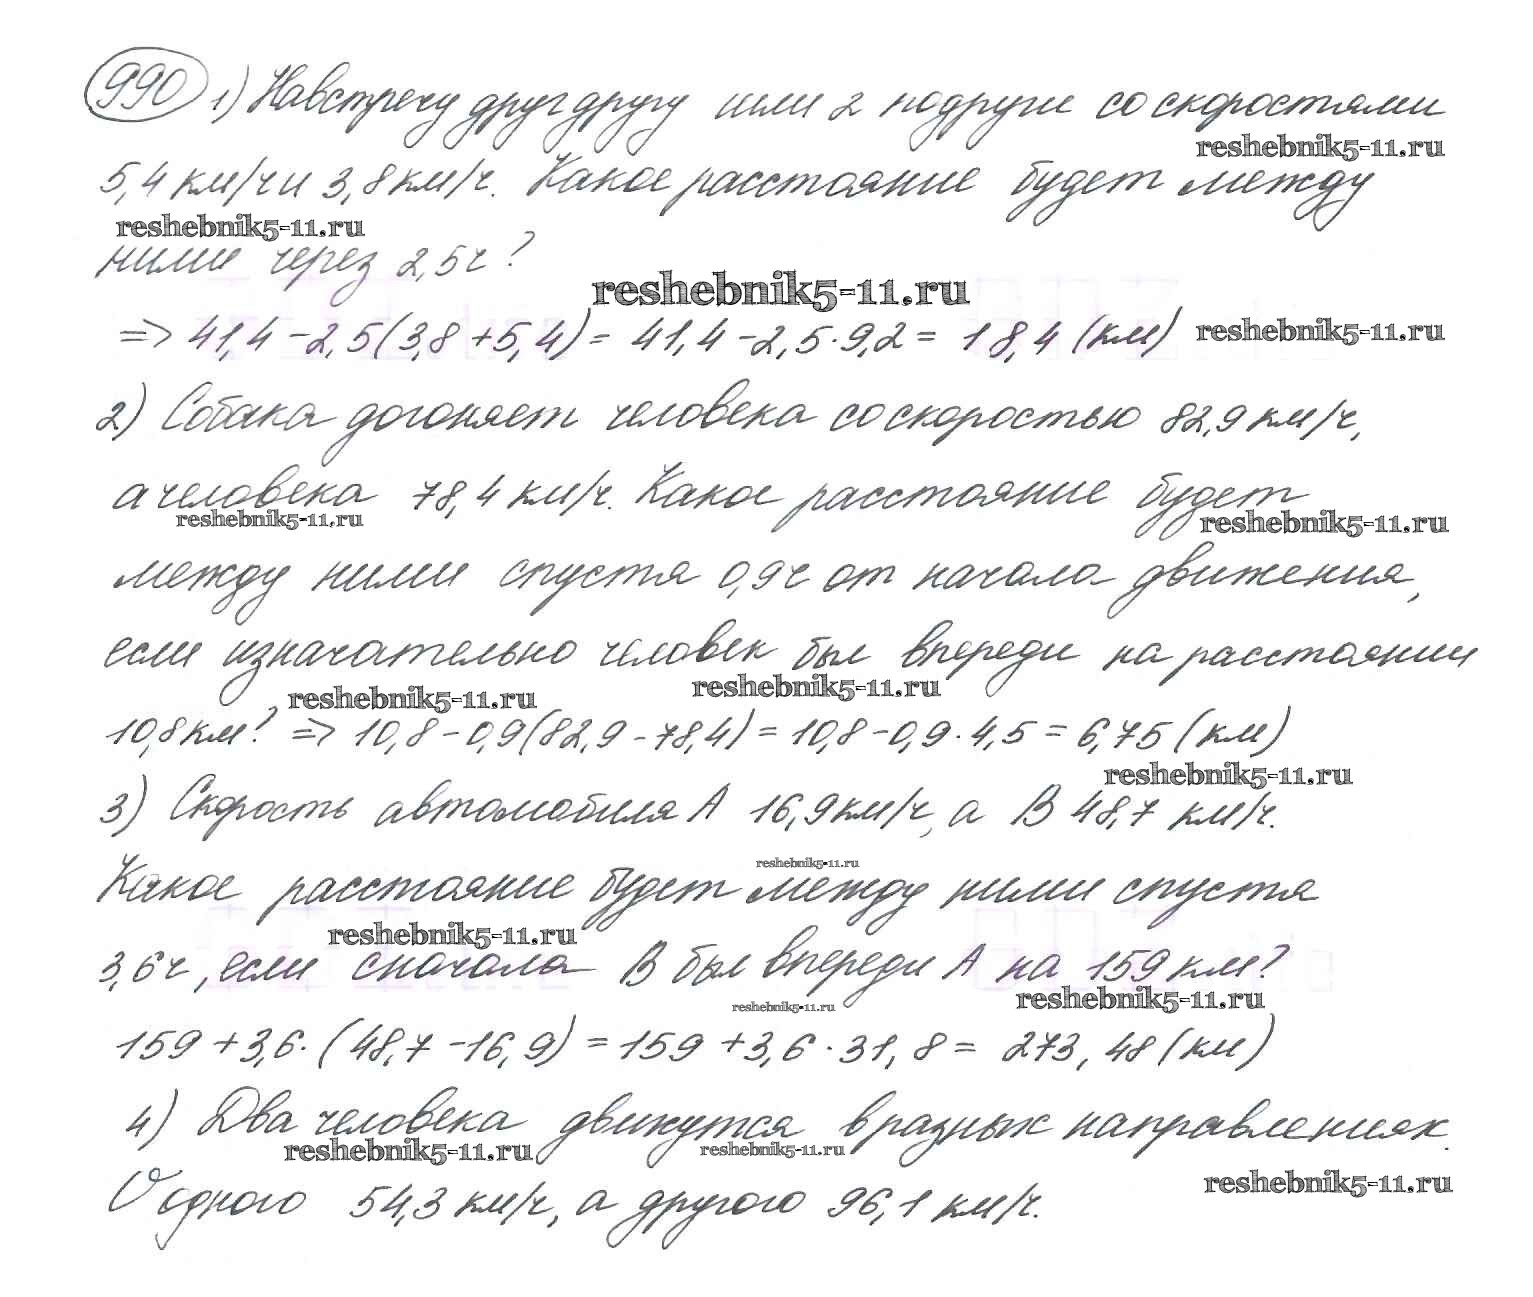 990 1) Навстречу друг другу шли 2 подруги со скоростями
reshebnik5-11.ru
5,4 км/ч и 3,8 км/ч. Какое расстояние будет между
reshebnik5-11.ru
ними через 2,5 ч?
reshebnik5-11.ru
=> 41,4 - 2,5(3,8 + 5,4) = 41,4 - 2,5 · 9,2 = 18,4 (км)
reshebnik5-11.ru
2) Собака догоняет человека со скоростью 82,9 км/ч,
а человека 78,4 км/ч. Какое расстояние будет
reshebnik5-11.ru
reshebnik5-11.ru
между ними спустя 0,9 ч от начала движения,
если изначательно человек был впереди на расстоянии
reshebnik5-11.ru
reshebnik5-11.ru
10,8 км? => 10,8 - 0,9(82,9 - 78,4) = 10,8 - 0,9 · 4,5 = 6,75 (км)
reshebnik5-11.ru
3) Скорость автомобиля А 16,9 км/ч, а В 48,7 км/ч.
reshebnik5-11.ru
Какое расстояние будет между ними спустя
reshebnik5-11.ru
3,6 ч, если сначала В был впереди А на 159 км?
reshebnik5-11.ru
reshebnik5-11.ru
159 + 3,6 · (48,7 - 16,9) = 159 + 3,6 · 31,8 = 273,48 (км)
4) Два человека движутся в разных направлениях.
reshebnik5-11.ru
reshebnik5-11.ru
reshebnik5-11.ru
У одного 54,3 км/ч, а другого 96,1 км/ч.